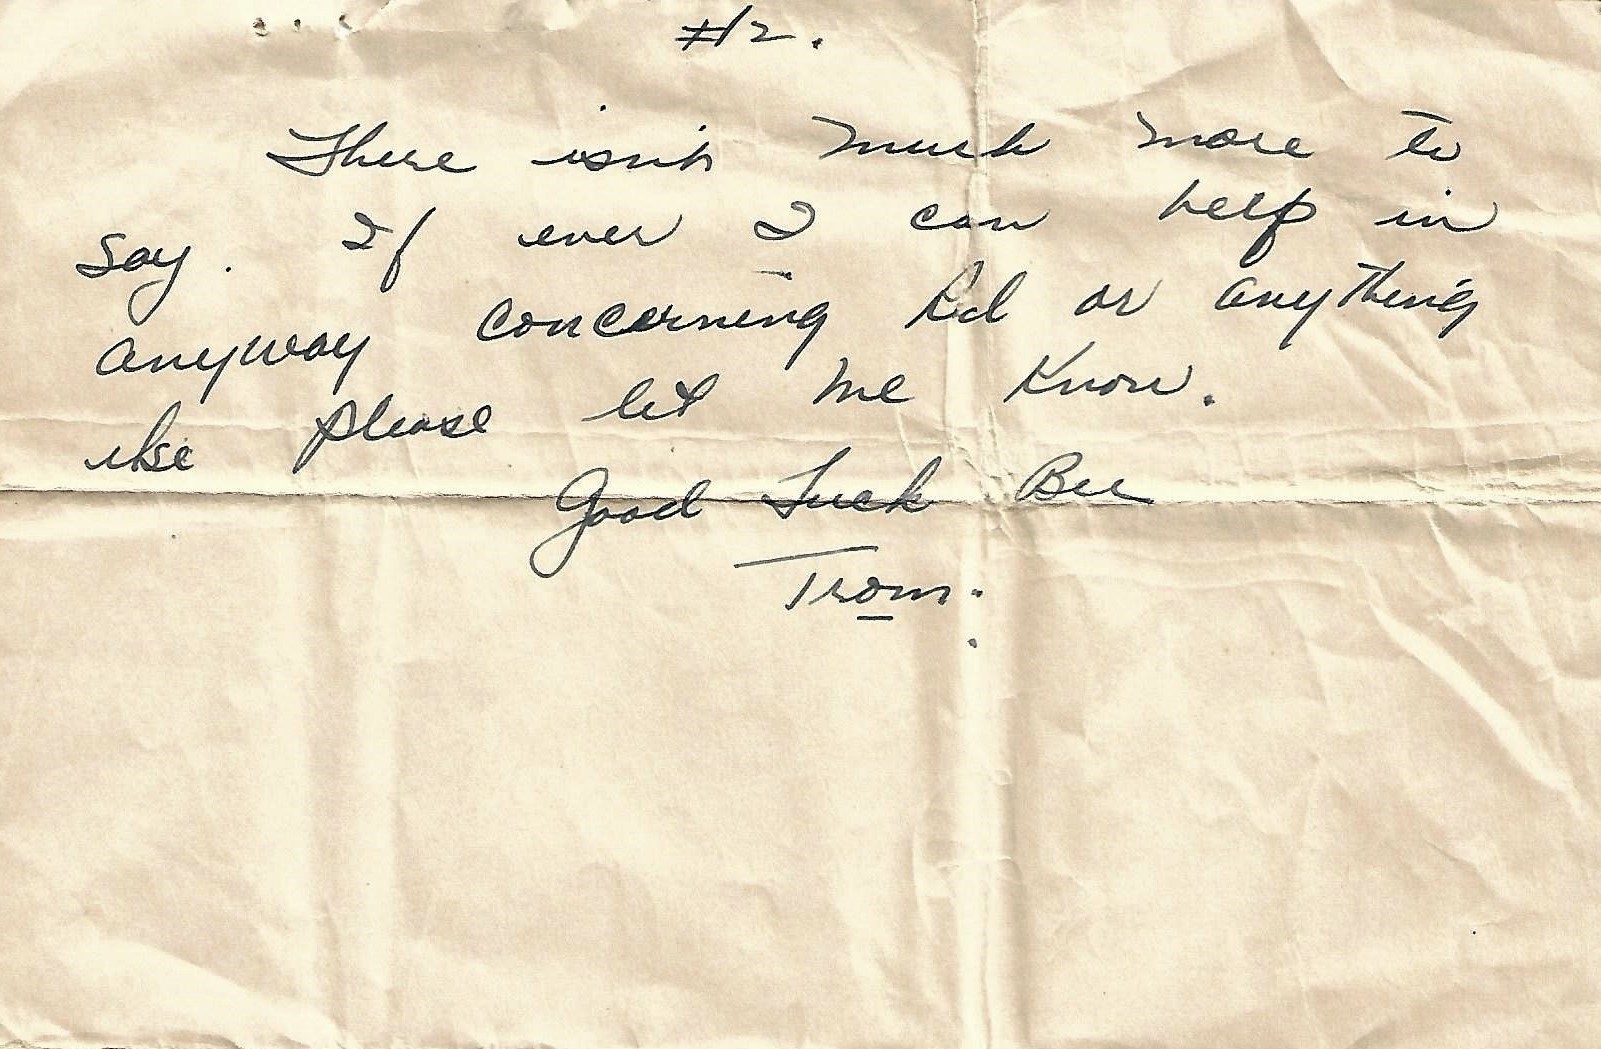 #2.
There isn't much more to
say. If ever I can help in
anyway concerning Ed or anything
else please let me know.
Good Luck Bee
Trom.